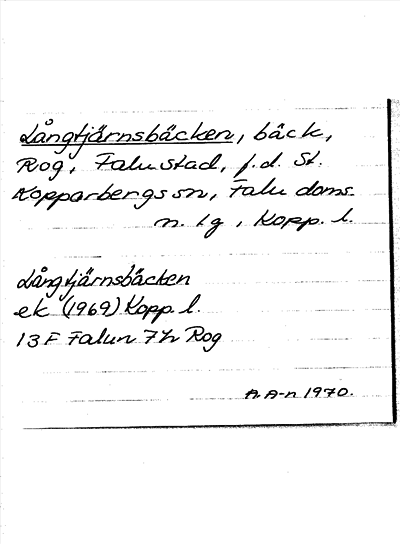 Långtjärnsbäcken, bäck,
Rog, Falu stad, f.d. St.
Kopparbergs sn, Falu doms.
n. lg, Kopp. l.
Långtjärnsbäcken
ek (1969) Kopp. l.
13 F Falun 7h Rog
A. A-n 1970.